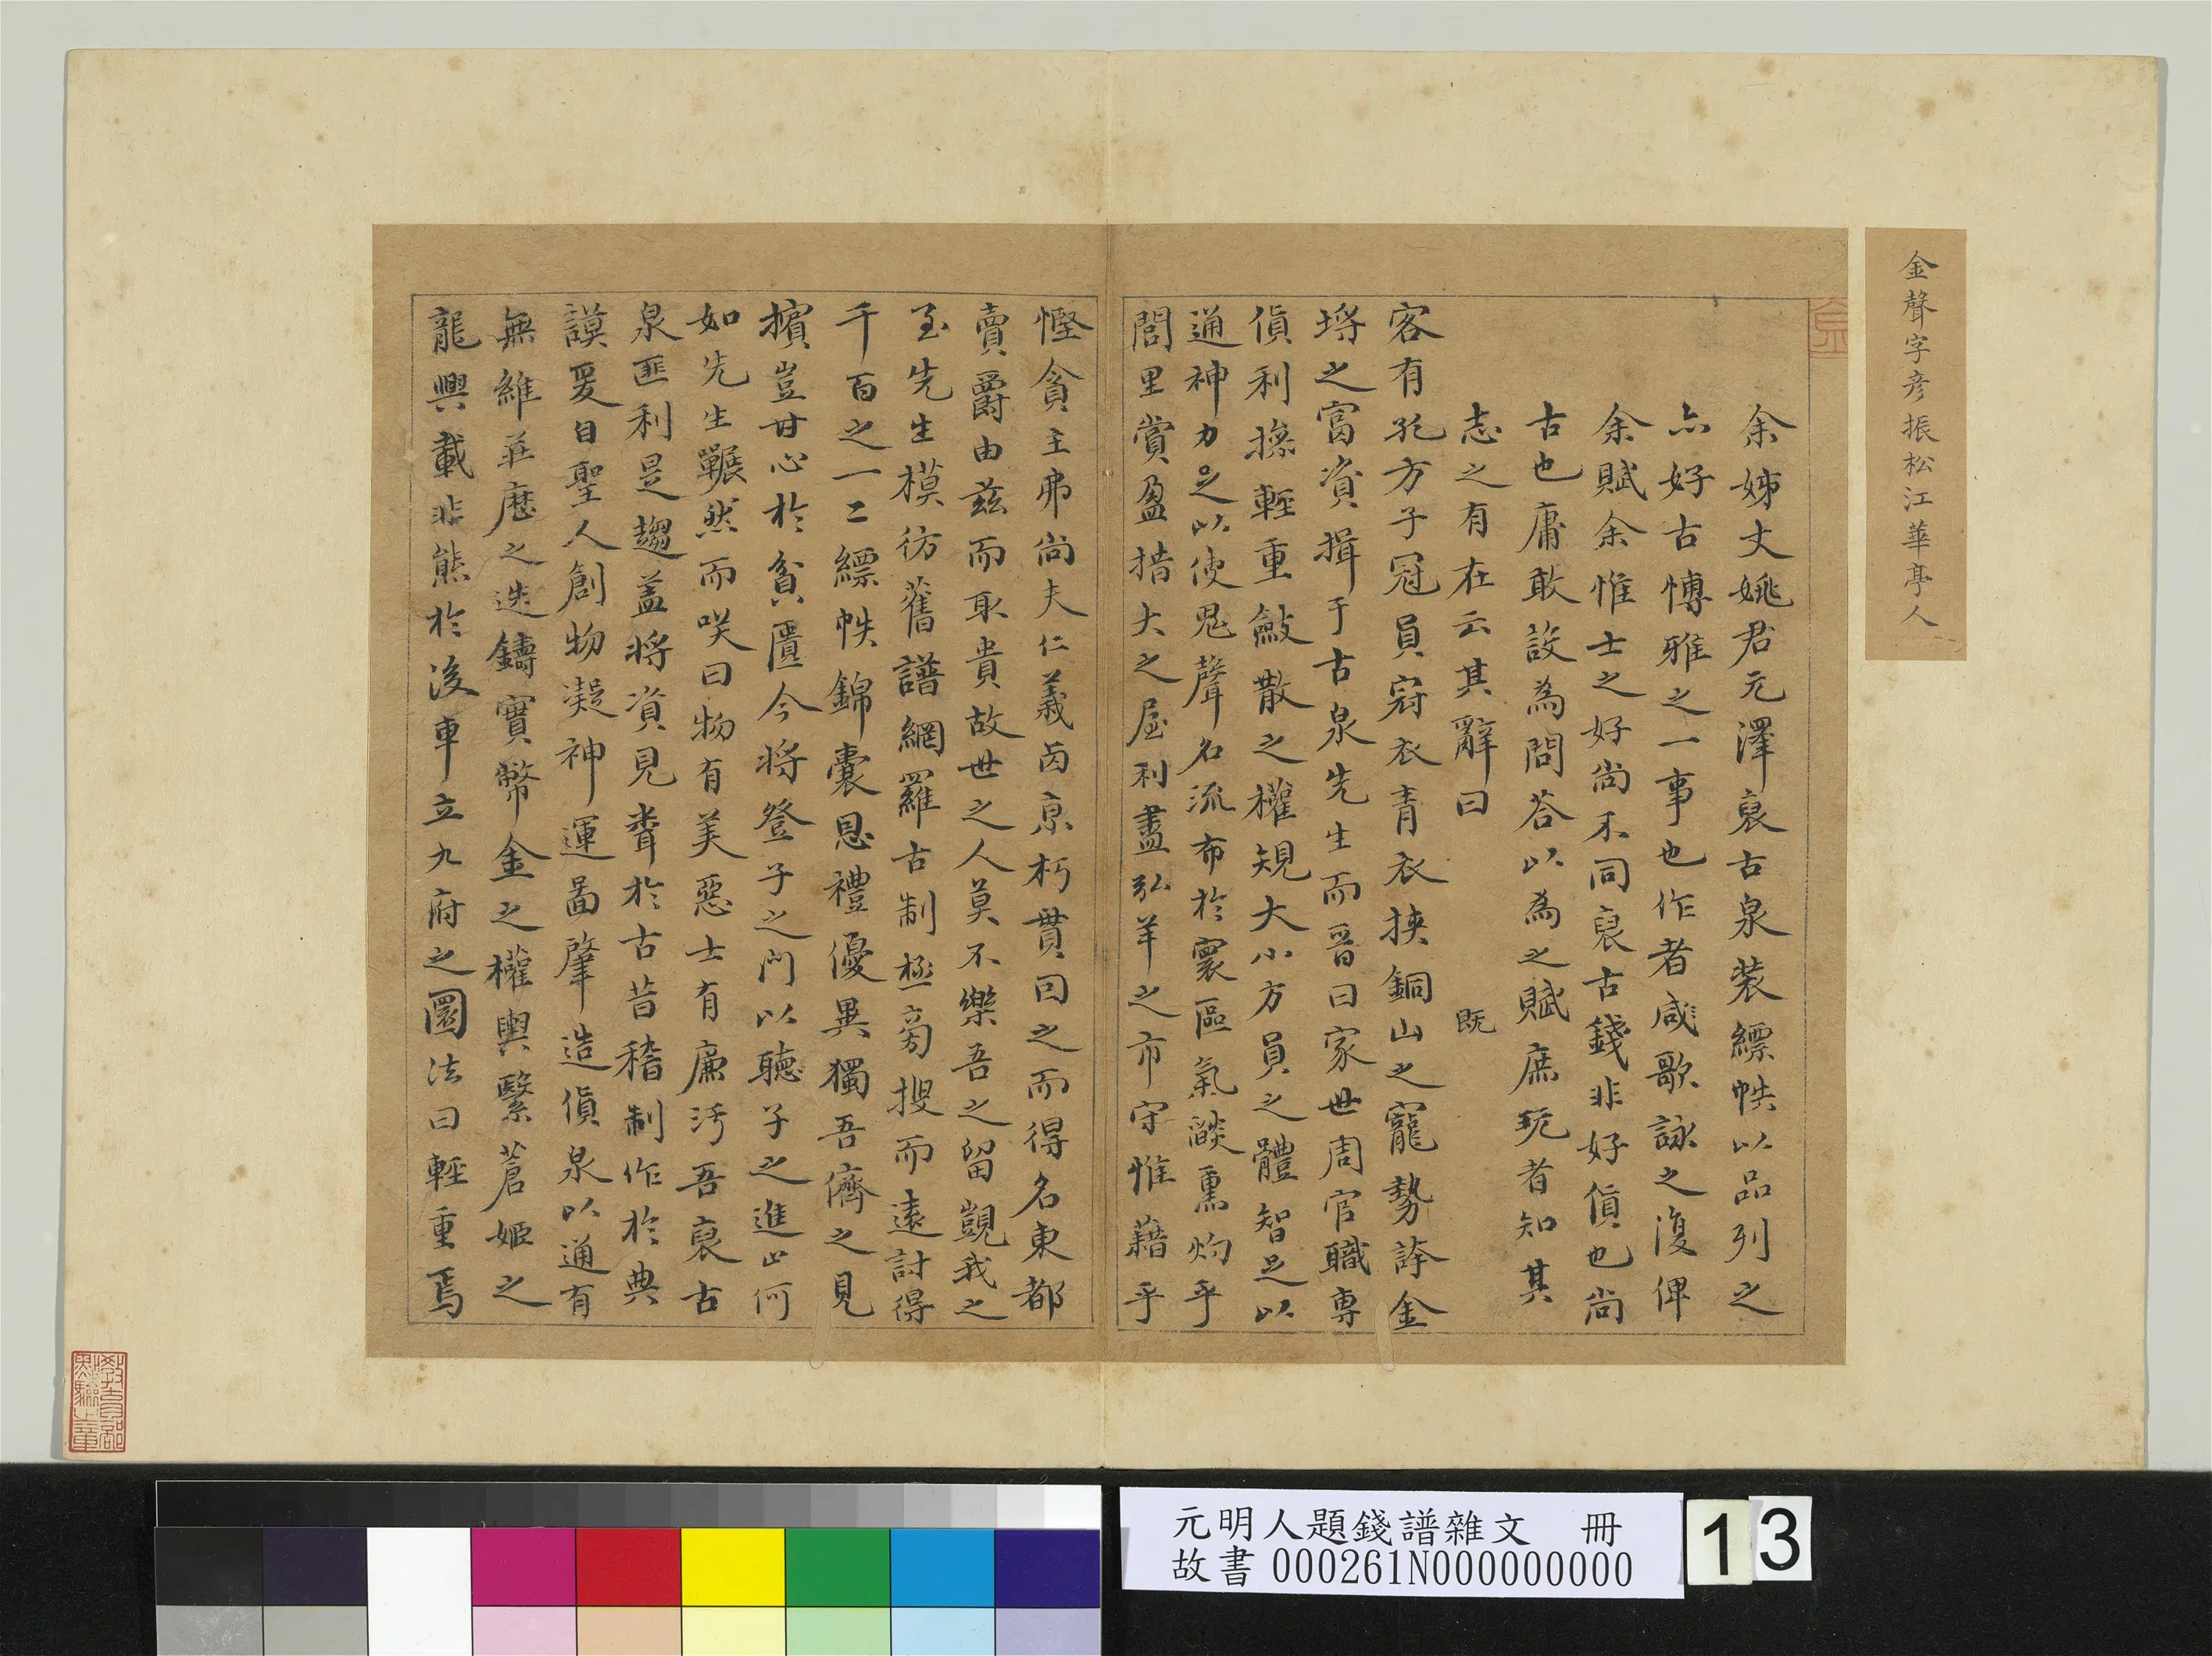 金聲字彥振松江華亭人
余姊丈姚君元澤裒古泉装縹帙以品列之
亦好古愽雅之一事也作者咸歌詠之復俾
余賦余惟士之好尚不同裒古錢非好貨也尚
古也庸敢設為問荅以為之賦庶玩者知其
志之有在云其辭曰
既
客有孔方子冠員冠衣青衣挾銅山之寵勢誇金
埒之富資揖于古泉先生而晉曰家世周官職專
貨利操輕重斂散之權規大小方員之體智足以
通神力足以使鬼聲名流布於寰區氣燄熏灼乎
閭里賞盈措大之屋利盡弘羊之市守惟藉乎
慳貪主弗尚夫仁義苟京朽貫因之而得名東都
賣爵由茲而取貴故世之人莫不樂吾之留覬我之
至先生模彷舊譜網羅古制極旁搜而遠討得
千百之一二縹帙錦囊恩禮優異獨吾儕之見
擯豈甘心於貧匱今將登子之門以聽子之進止何
如先生囅然而咲曰物有美惡士有廉汚吾裒古
泉匪利是趨盖將資見聞於古昔稽制作於典
謨爰自聖人創物凝神運啚肇造貨泉以通有
無維莊歷之迭鑄實幣金之權輿繄蒼姬之
龍興載非熊於後車立九府之圜法曰輕重焉
元明人題錢譜雜文 冊
故書 000261N000000000
13